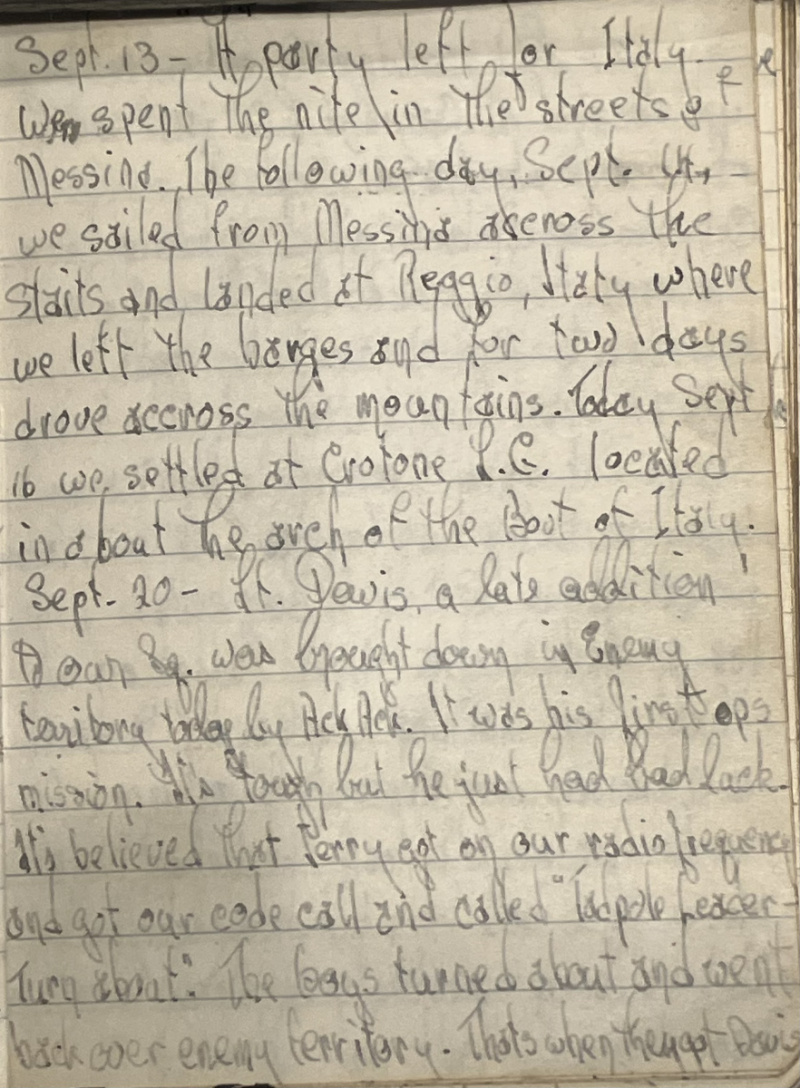 Sept. 13 - A party left for Italy.
We spent the nite in the streets of
Messina. The following day, Sept. 14, -
we sailed from Messina accross the
staits and landed at Reggio, Italy where
we left the barges and for two days
drove accross the mountains. Today Sept
16 we settled at Crotone L.G. located
in about the arch of the Boot of Italy.
Sept. 20 - Lt. Davis, a late addition
to our Sq. was brought down in Enemy
territory today by Ack Ack. It was his first ops
mission. It's tough but he just had bad luck.
It's believed that Jerry got on our radio frequency
and got our code call and called "Tadpole Leader -
Turn about". The boys turned about and went
back over enemy territory. Thats when they got Davis